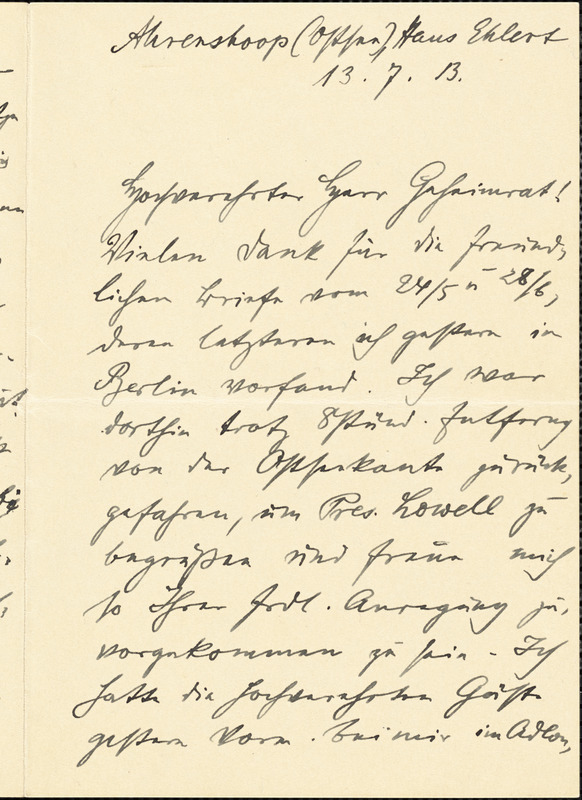 Ahrenshoop (Ostsee) Haus Ehlert
13. 7. 13.
Hochverehrter Herr Geheimrat!
Vielen Dank für die freund-
lichen Briefe vom 24/5 u 28/6,
deren letzteren ich gestern in
Berlin vorfand. Ich war
dorthin trotz 8stünd. Entferng
von der Ostseekante zurück,
gefahren, um Pres. Lowell zu
begrüßen und freue mich
so Ihrer frdl. Anregung zu,
vorgekommen zu sein. Ich
hatte die hochverehrten Gäste
gestern Vorm. bei mir im Adlon,